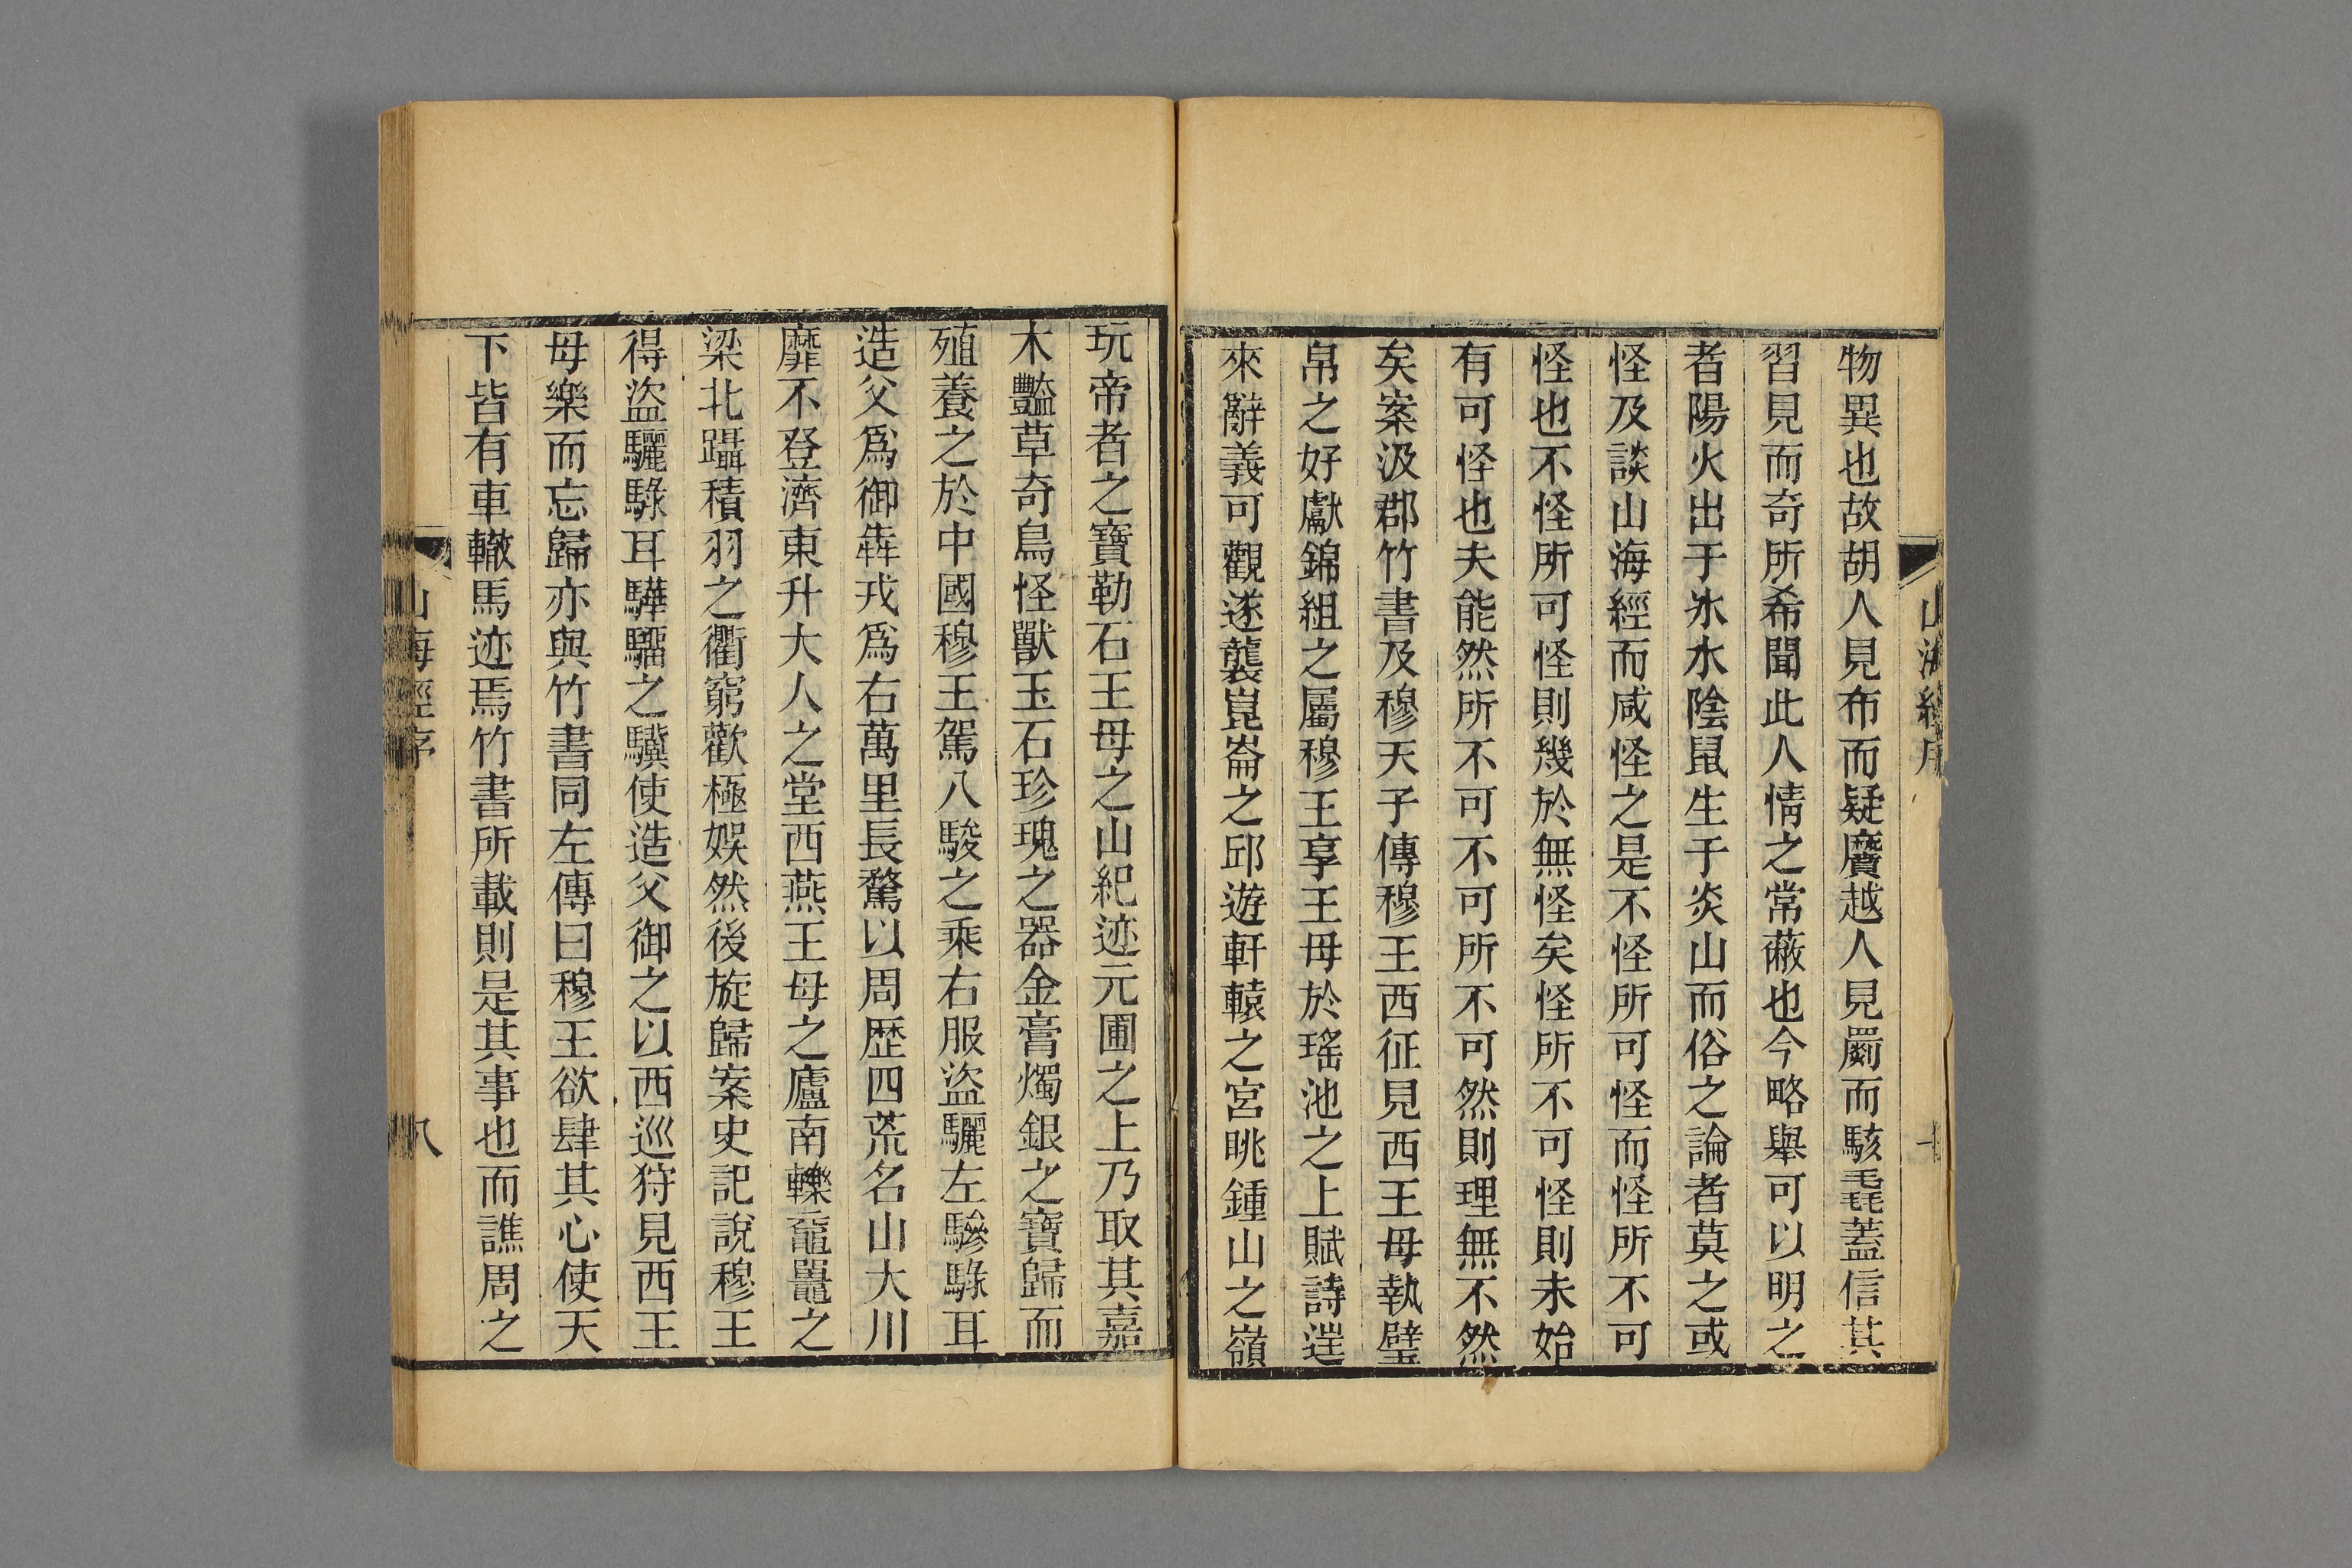 山海經序
物異也故胡人見布而疑黂越人見罽而駭毳蓋信其
習見而奇所希聞此人情之常蔽也今略舉可以明之
者陽火出于氷水陰鼠生于炎山而俗之論者莫之或
怪及談山海經而咸怪之是不怪所可怪而怪所不可
怪也不怪所可怪則幾於無怪矣怪所不可怪則未始
有可怪也夫能然所不可不可所不可然則理無不然
矣案汲郡竹書及穆天子傳穆王西征見西王母執璧
帛之好獻錦組之屬穆王享王母於瑤池之上賦詩逞
來辭義可觀遂襲崑崙之邱遊軒轅之宮眺鍾山之嶺
玩帝者之寶勒石王母之山紀迹元圃之上乃取其嘉
木豔草奇鳥怪獸玉石珍瑰之器金膏燭銀之寶歸而
殖養之於中國穆王駕八駿之乘右服盜驪左驂騄耳
造父爲御犇戎爲右萬里長騖以周歷四荒名山大川
靡不登濟東升大人之堂西燕王母之廬南轢黿鼉之
梁北躡積羽之衢窮歡極娛然後旋歸案史記說穆王
得盜驪騄耳驊騮之驥使造父御之以西巡狩見西王
母樂而忘歸亦與竹書同左傳曰穆王欲肆其心使天
下皆有車轍馬迹焉竹書所載則是其事也而譙周之
山海經序
八